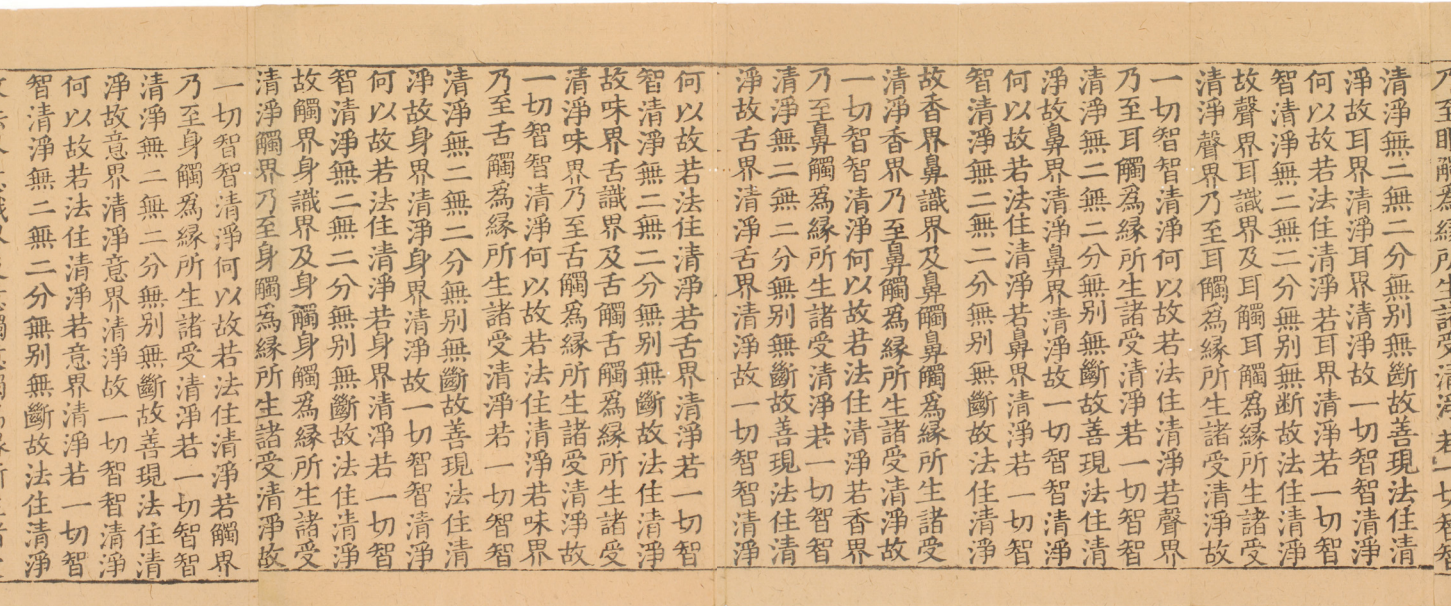 乃至眼觸爲縁所生諸受清淨若一切智智
清淨無二無二分無別無斷故善現法住清
淨故耳界清淨耳界清淨故一切智智清淨
何以故若法住清淨若耳界清淨若一切智
智清淨無二無二分無別無断故法住清淨
故聲界耳識界及耳觸耳觸爲縁所生諸受
清淨聲界乃至耳觸爲縁所生諸受清淨故
一切智智清淨何以故若法住清淨若聲界
乃至耳觸爲縁所生諸受清淨若一切智智
清淨無二無二分無別無斷故善現法住清
淨故鼻界清淨鼻界清淨故一切智智清淨
何以故若法住清淨若鼻界清淨若一切智
智清淨無二無二分無別無斷故法住清淨
故香界鼻識界及鼻觸鼻觸爲縁所生諸受
清淨香界乃至鼻觸爲縁所生諸受清淨故
一切智智清淨何以故若法住清淨若香界
乃至鼻觸爲縁所生諸受清淨若一切智智
清淨無二無二分無別無斷故善現法住清
淨故舌界清淨舌界清淨故一切智智清淨
何以故若法住清淨若舌界清淨若一切智
智清淨無二無二分無別無斷故法住清淨
故味界舌識界及舌觸舌觸爲縁所生諸受
清淨味界乃至舌觸爲縁所生諸受清淨故
一切智智清淨何以故若法住清淨若味界
乃至舌觸爲縁所生諸受清淨若一切智智
清淨無二無二分無別無斷故善現法住清
淨故身界清淨身界清淨故一切智智清淨
何以故若法住清淨若身界清淨若一切智
智清淨無二無二分無別無斷故法住清淨
故觸界身識界及身觸身觸爲縁所生諸受
清淨觸界乃至身觸爲縁所生諸受清淨故
一切智智清淨何以故若法住清淨若觸界
乃至身觸爲縁所生諸受清淨若一切智智
清淨無二無二分無別無斷故善現法住清
淨故意界清淨意界清淨故一切智智清淨
何以故若法住清淨若意界清淨若一切智
智清淨無二無二分無別無斷故法住清淨